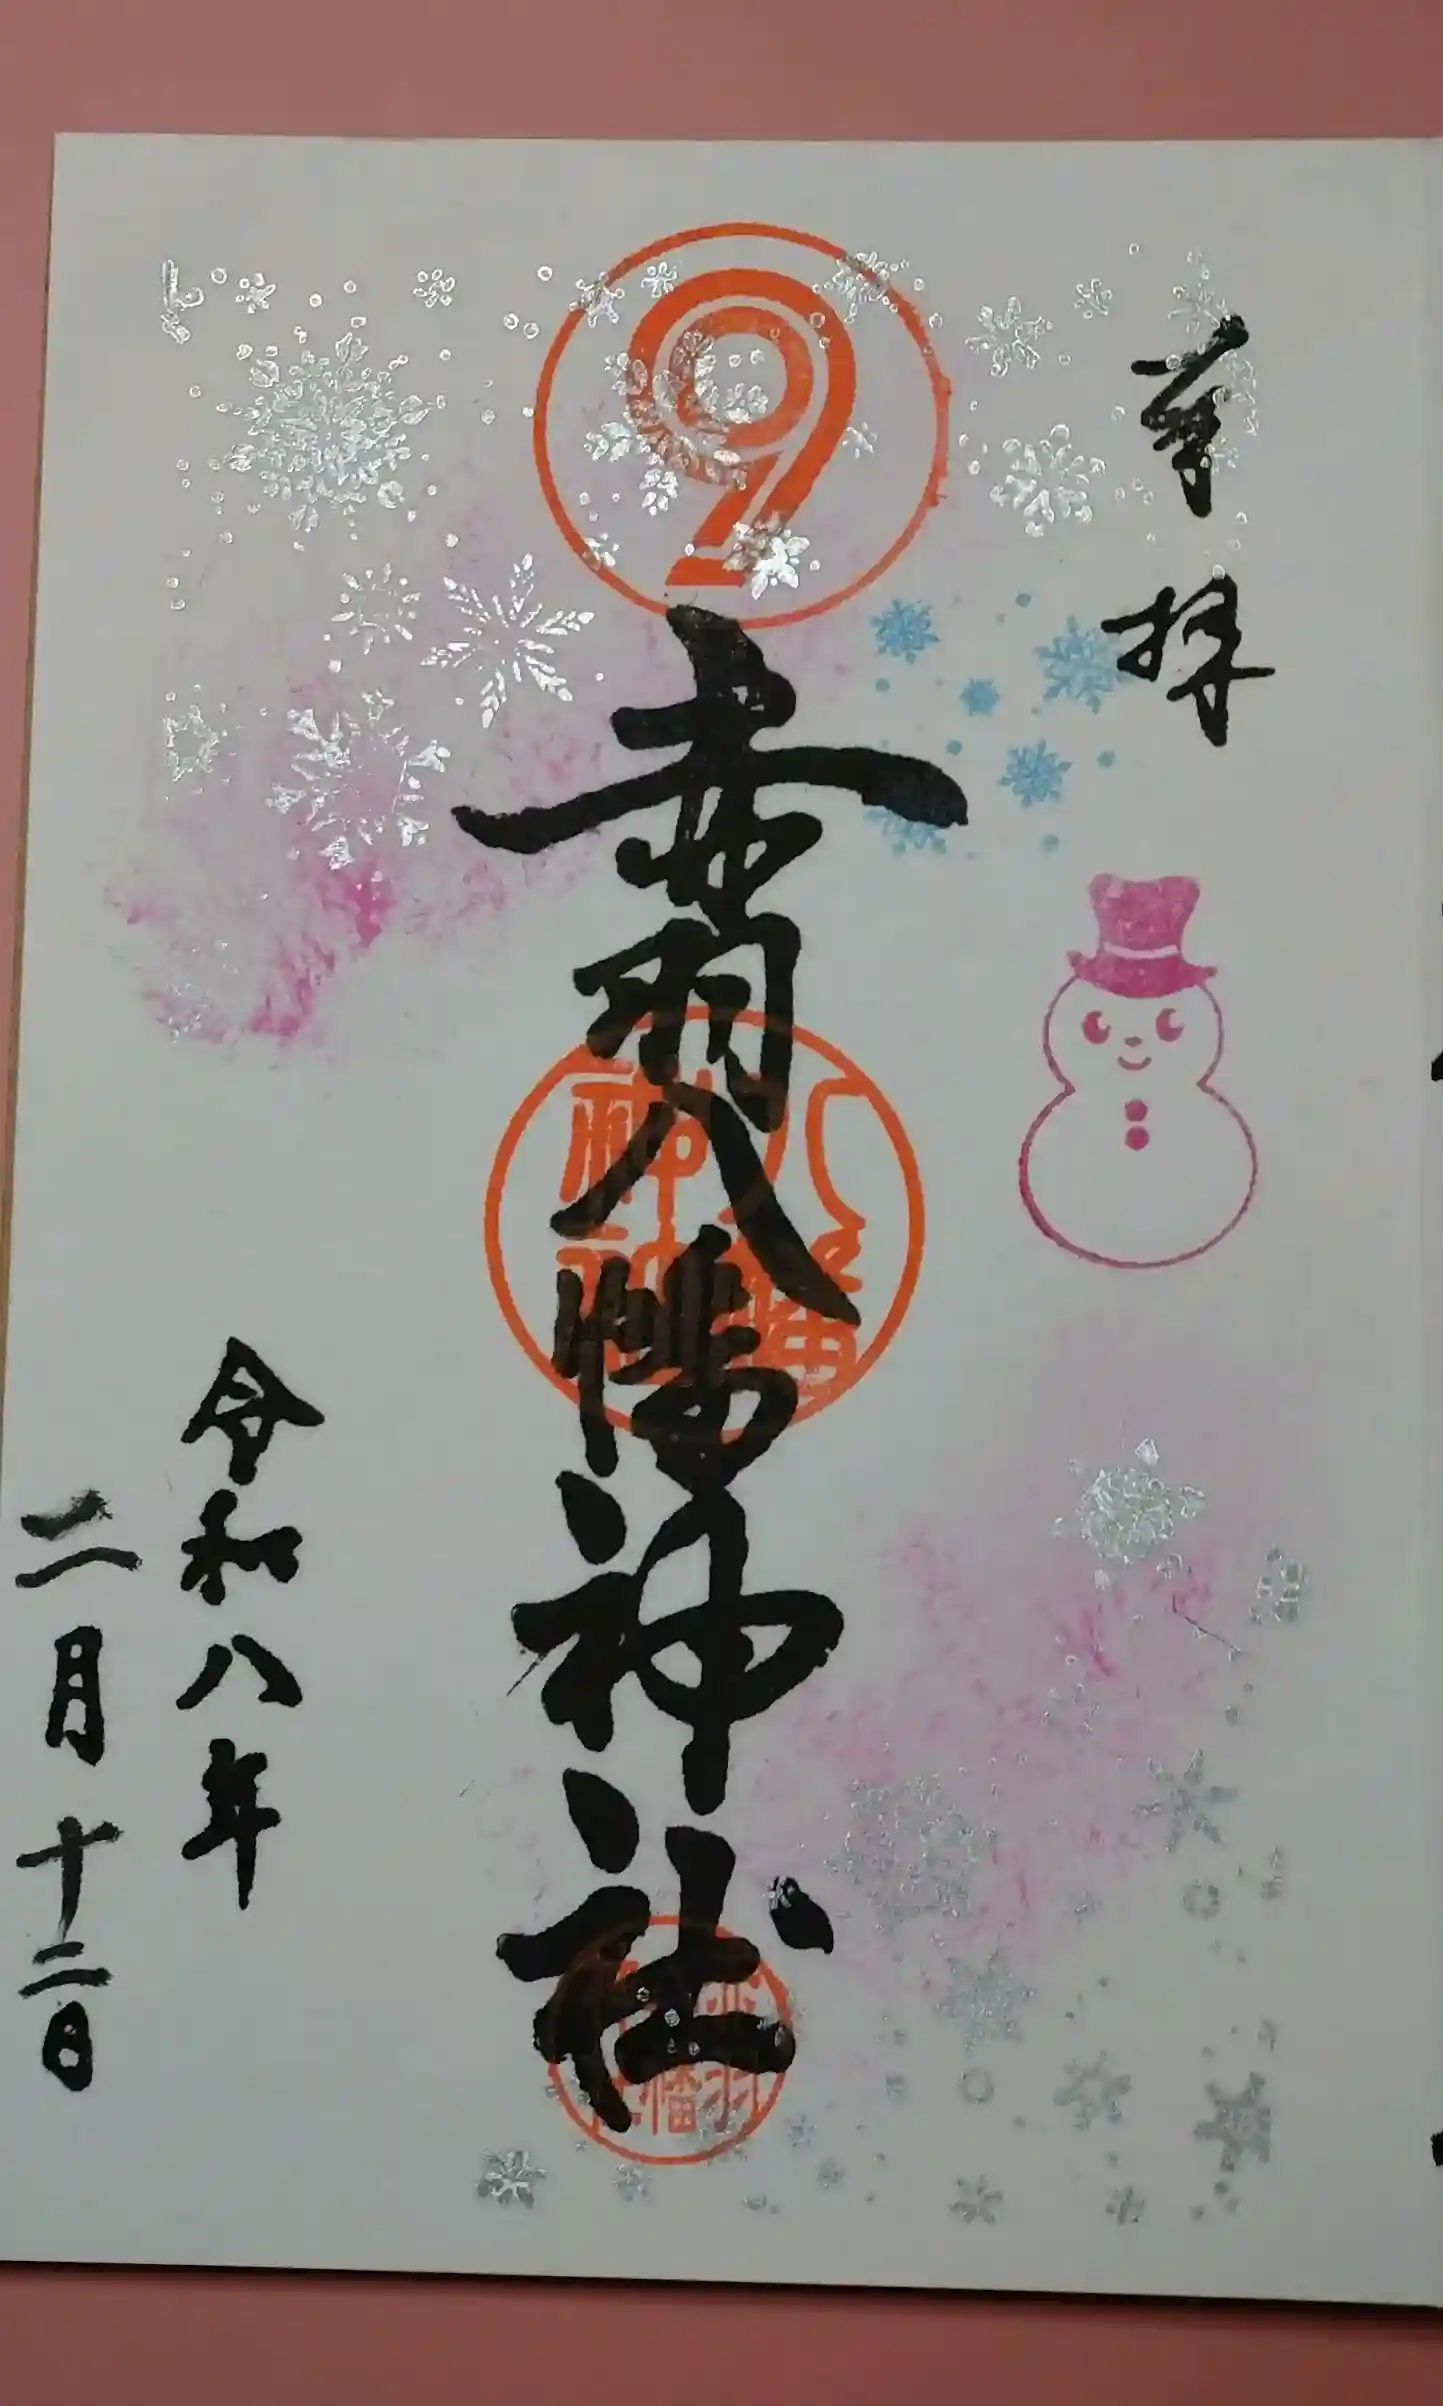 奉拝
赤羽八幡神社
八幡
神社
令和八年
二月十二日